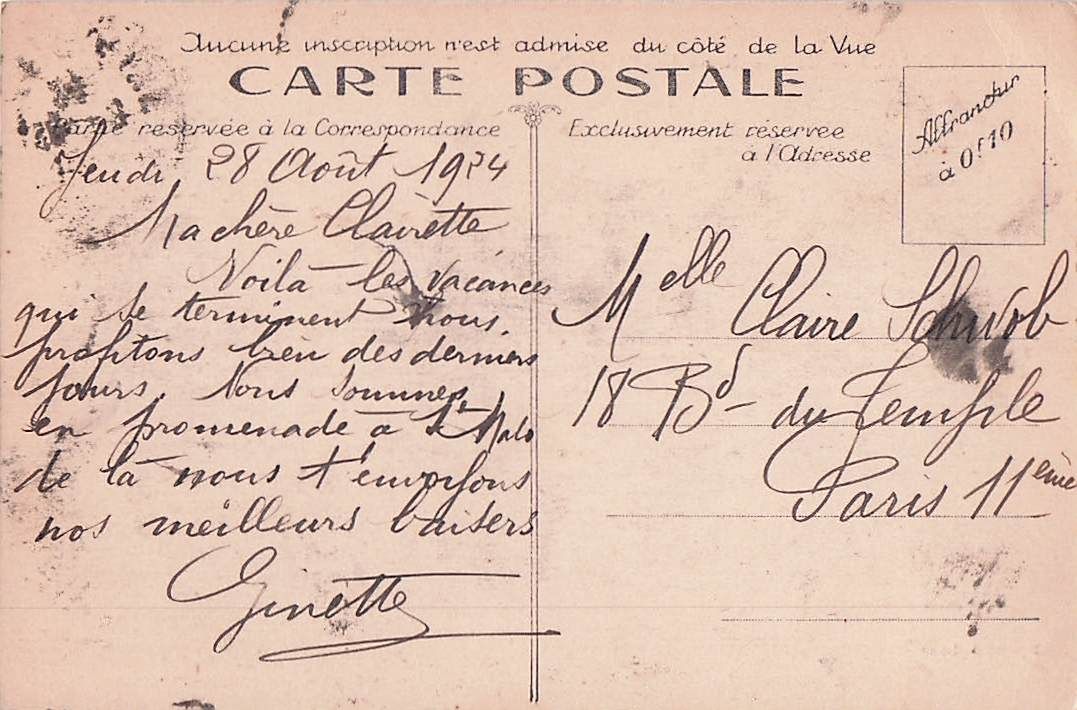 Aucune inscription n'est admise du côté de la Vue
CARTE POSTALE
Partie reservée à la Correspondance
Exclusivement réservee
à l'Adresse
Affranchir
à 0f10
Jeudi 28 Août 1924
Ma chère Clairette
Voilà les vacances
qui se terminent nous
profitons bien des derniers
jours. Nous sommes
en promenade à St Malo
de là nous t'envoyons
nos meilleurs baisers
Ginette
Melle Claire Schwob
18 Bd du Temple
Paris 11eme